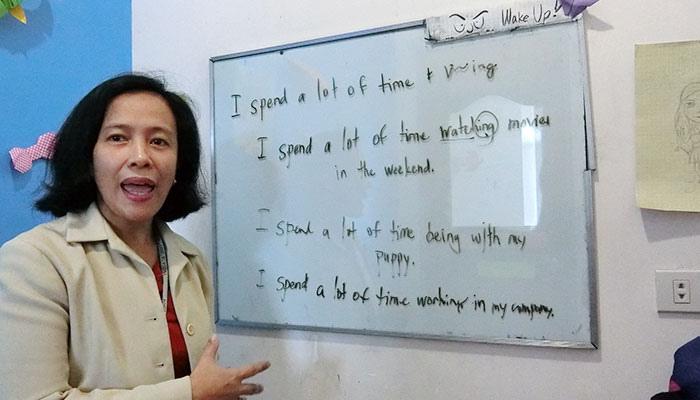 Wake Up!
I spend a lot of time + V~ing.
I spend a lot of time watching movies
in the weekend.
I spend a lot of time being with my
puppy.
I spend a lot of time working in my company.